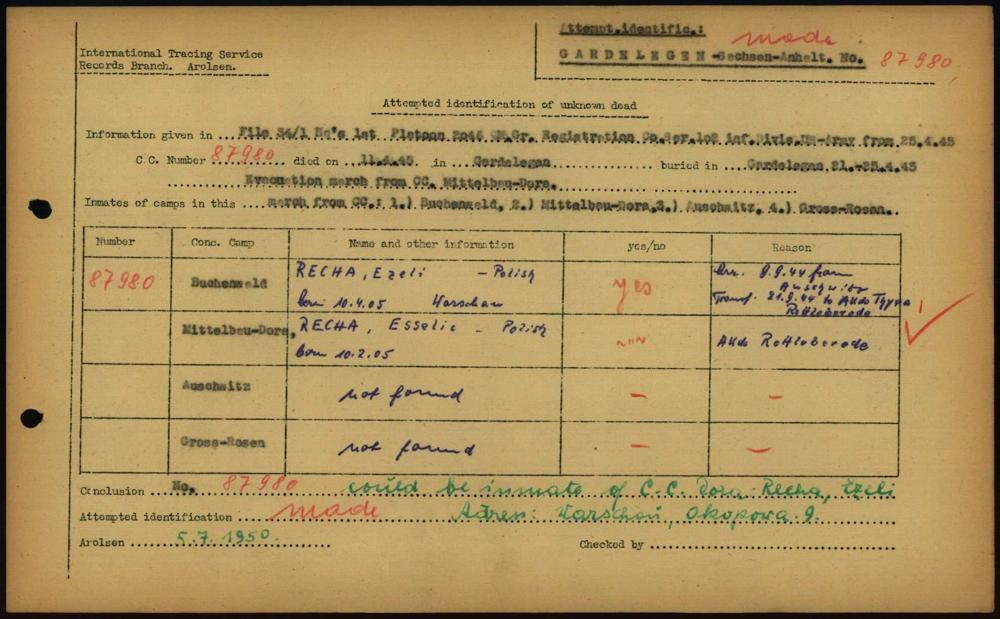 International Tracing Service
Records Branch. Arolsen.
Attempt.identific.: made
GARDELEGEN-Sachsen-Anhalt. No. 87980
Attempted identification of unknown dead
Information given in ...File 54/1 1st Platoon 3046 QM.Gr. Registration Co.Ser.102 inf.Divis.US-Army from 25.4.45
C.C. Number 87980... died on ..11.4.45 in ...Gardelegen buried in ...Gardelegen 21.-25.4.45
Evacuation march from CC. Mittelbau-Dora.
Inmates of camps in this ....march from CC.: 1.) Buchenwald, 2.) Mittelbau-Dora,3.) Auschwitz, 4.) Gross-Rosen..
Number Conc. Camp Name and other information yes/no Reason
87980 Buchenwald RECHA, Ezeli - Polish yes Arr. 9.9.44 from Auschwitz
born 10.4.05 Warschau Transf. 21.9.44 to AKdo Rottleberode
Mittelbau-Dora, RECHA, Esselie - Polish -"- AKdo Rottleberode
born 10.2.05
Auschwitz not found - -
Gross-Rosen not found - -
Conclusion ...No. 87980 could be inmate of C.C. Dora: Recha, Ezeli
Attempted identification ... made Adress: Warschau, Okopowa 9.
Arolsen ..... 5.7.1950 Checked by